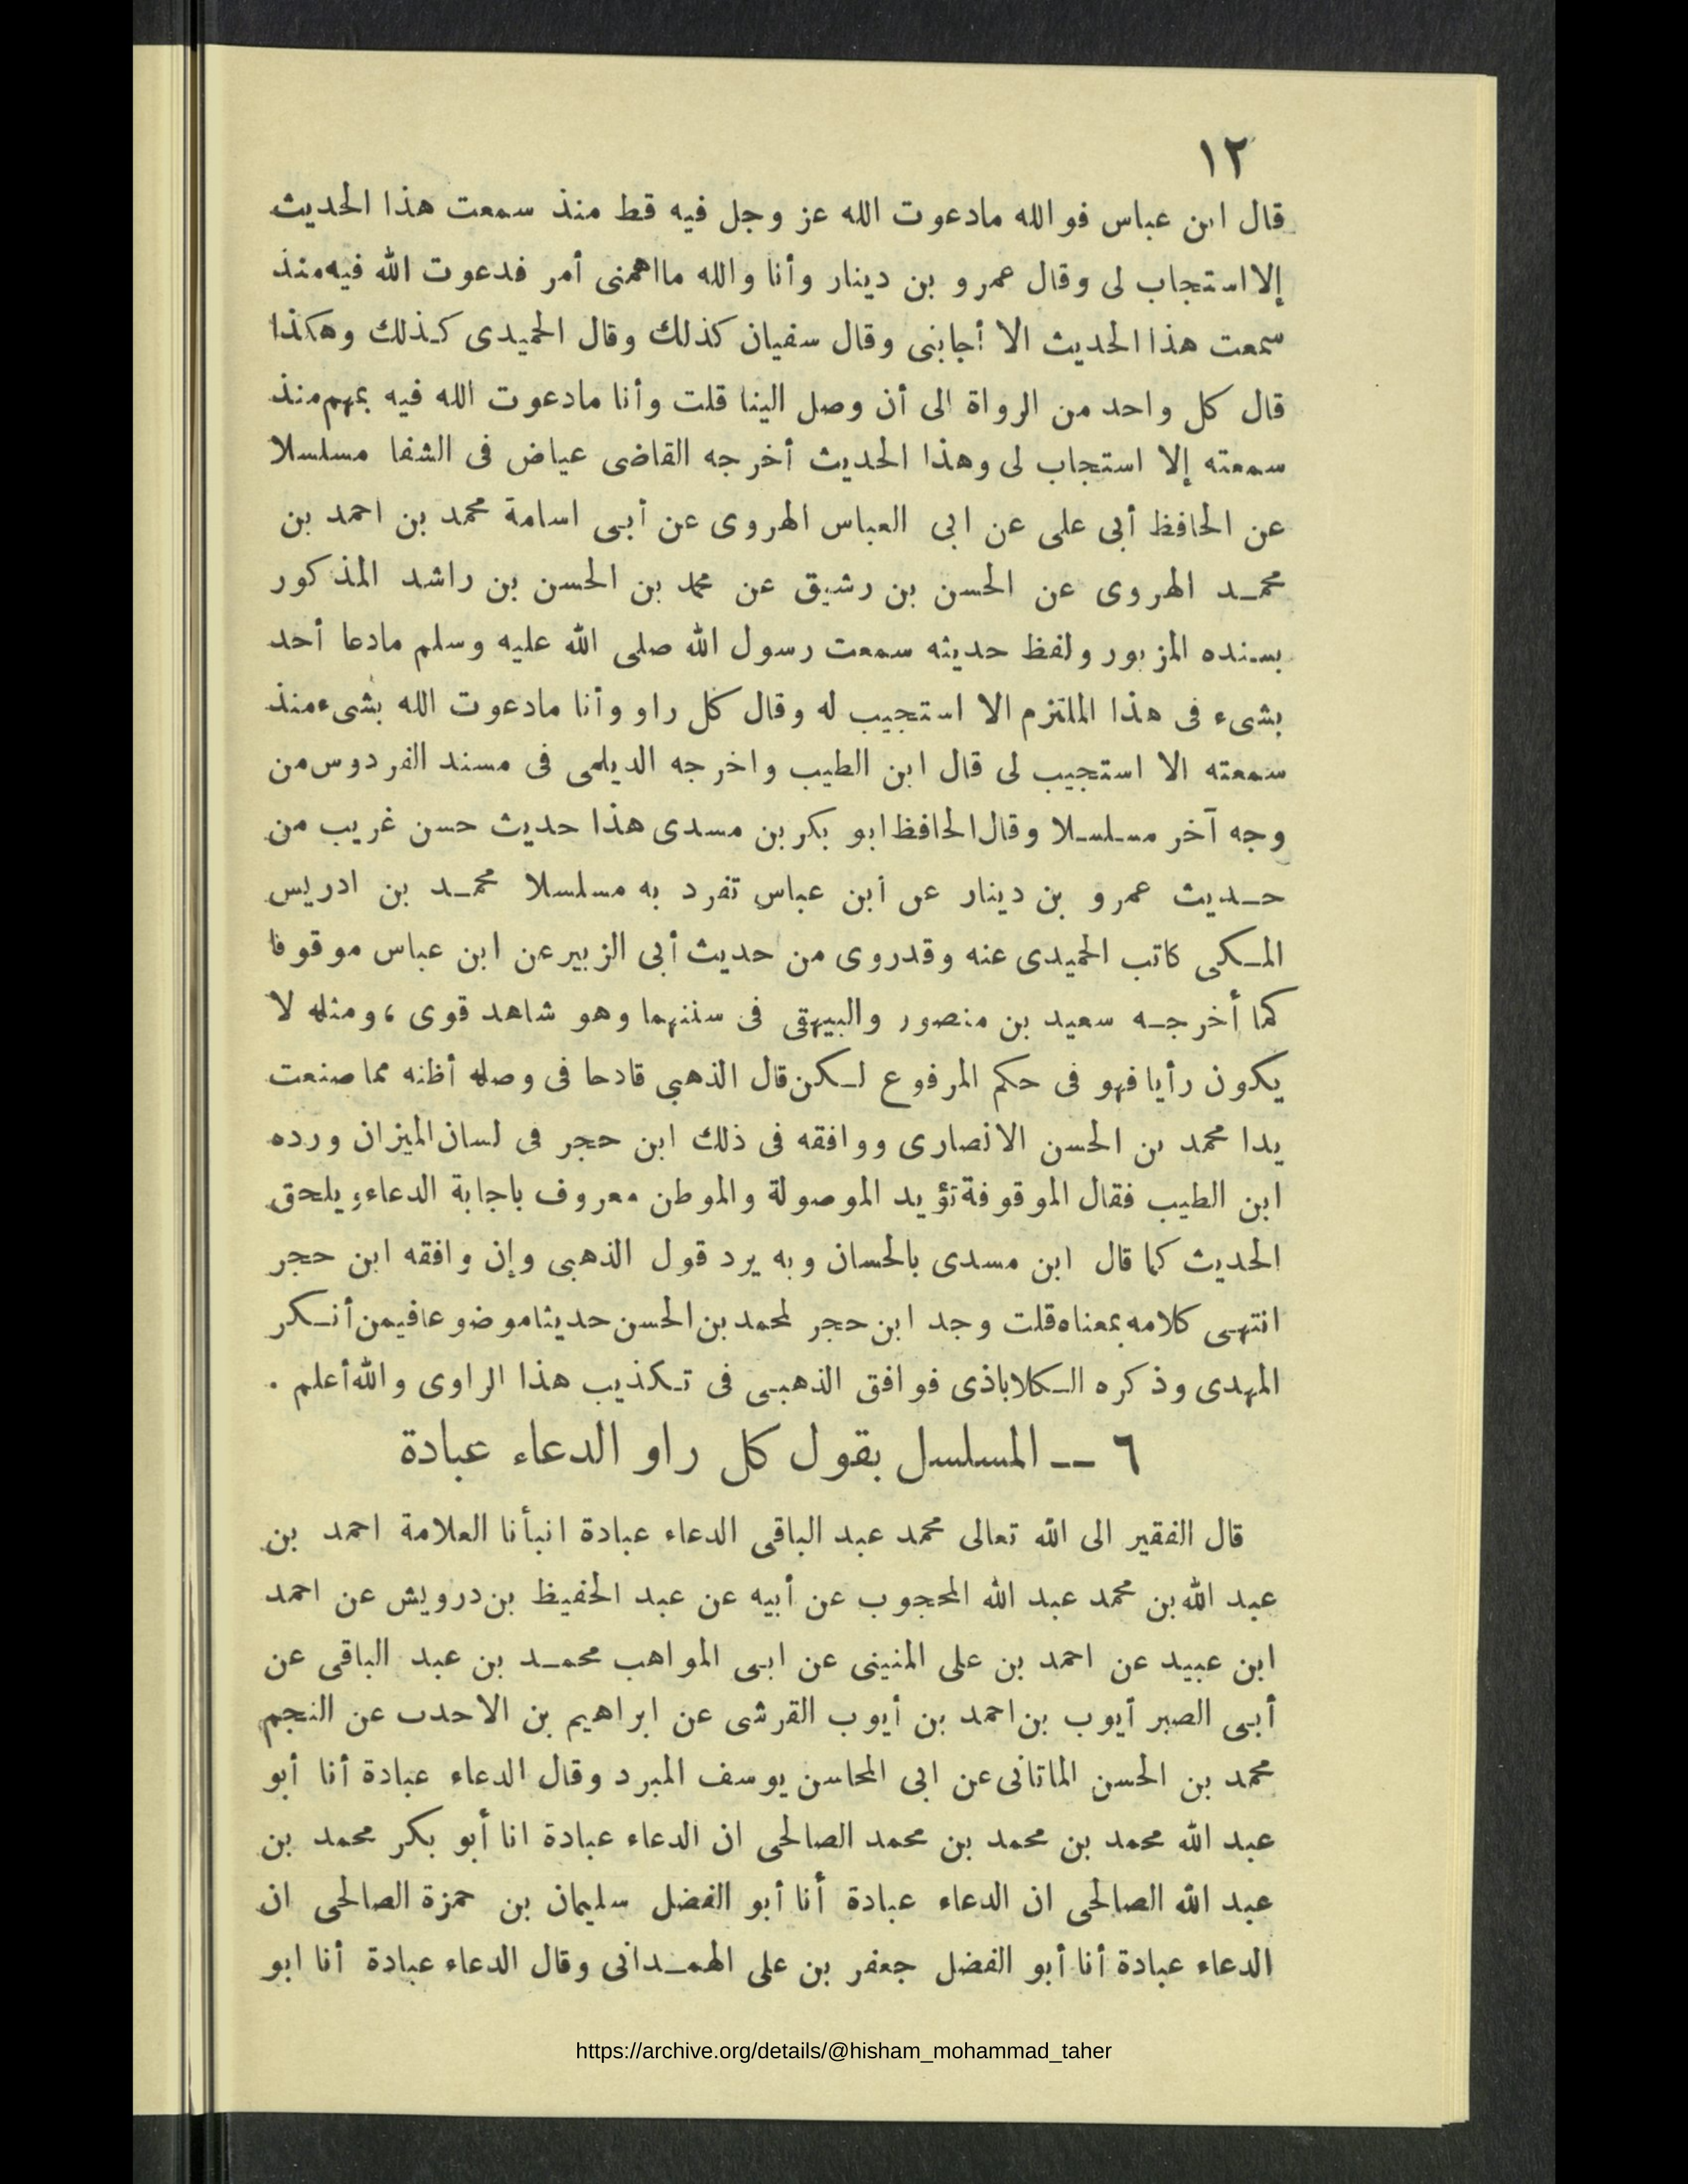 ١٢
قال ابن عباس فو الله مادعوت الله عز وجل فيه قط منذ سمعت هذا الحديث
إلا استجاب لى وقال عمرو بن دينار وأنا والله مااهمنى أمر فدعوت الله فيه منذ
سمعت هذا الحديث الا أجابنى وقال سفيان كذلك وقال الحميدى كذلك وهكذا
قال كل واحد من الرواة الى أن وصل الينا قلت وأنا مادعوت الله فيه بمهم منذ
سمعته إلا استجاب لى وهذا الحديث أخرجه القاضى عياض فى الشفا مسلسلا
عن الحافظ أبى على عن ابى العباس الهروى عن أبى اسامة محمد بن احمد بن
محمد الهروى عن الحسن بن رشيق عن محمد بن الحسن بن راشد المذكور
بسنده المزبور ولفظ حديثه سمعت رسول الله صلى الله عليه وسلم مادعا أحد
بشىء فى هذا الملتزم الا استجيب له وقال كل راو وأنا مادعوت الله بشىء منذ
سمعته الا استجيب لى قال ابن الطيب واخرجه الديلمى فى مسند الفردوس من
وجه آخر مسلسلا وقال الحافظ ابو بكر بن مسدى هذا حديث حسن غريب من
حديث عمرو بن دينار عن ابن عباس تفرد به مسلسلا محمد بن ادريس
المكى كاتب الحميدى عنه وقدروى من حديث أبى الزبير عن ابن عباس موقوفا
كما أخرجه سعيد بن منصور والبيهقى فى سننهما وهو شاهد قوى ، ومثله لا
يكون رأيا فهو فى حكم المرفوع لكن قال الذهبى قادحا فى وصله أظنه مما صنعت
يدا محمد بن الحسن الانصارى ووافقه فى ذلك ابن حجر فى لسان الميزان ورده
ابن الطيب فقال الموقوفة تؤيد الموصولة والموطن معروف باجابة الدعاء ويلحق
الحديث كما قال ابن مسدى بالحسان وبه يرد قول الذهبى وإن وافقه ابن حجر
انتهى كلامه بمعناه قلت وجد ابن حجر لمحمد بن الحسن حديثا موضوعا فيمن أنكر
المهدى وذكره الكلاباذى فوافق الذهبى فى تكذيب هذا الراوى والله أعلم .
٦ ــ المسلسل بقول كل راو الدعاء عبادة
قال الفقير الى الله تعالى محمد عبد الباقى الدعاء عبادة انبأنا العلامة احمد بن
عبد الله بن محمد عبد الله المحجوب عن أبيه عن عبد الحفيظ بن درويش عن احمد
ابن عبيد عن احمد بن على المنينى عن ابى المواهب محمد بن عبد الباقى عن
أبى الصبر أيوب بن احمد بن أيوب القرشى عن ابراهيم بن الاحدب عن النجم
محمد بن الحسن الماتانى عن ابى المحاسن يوسف المبرد وقال الدعاء عبادة أنا أبو
عبد الله محمد بن محمد بن محمد الصالحى ان الدعاء عبادة انا أبو بكر محمد بن
عبد الله الصالحى ان الدعاء عبادة أنا أبو الفضل سليمان بن حمزة الصالحى ان
الدعاء عبادة أنا أبو الفضل جعفر بن على الهمدانى وقال الدعاء عبادة أنا ابو
https://archive.org/details/@hisham_mohammad_taher